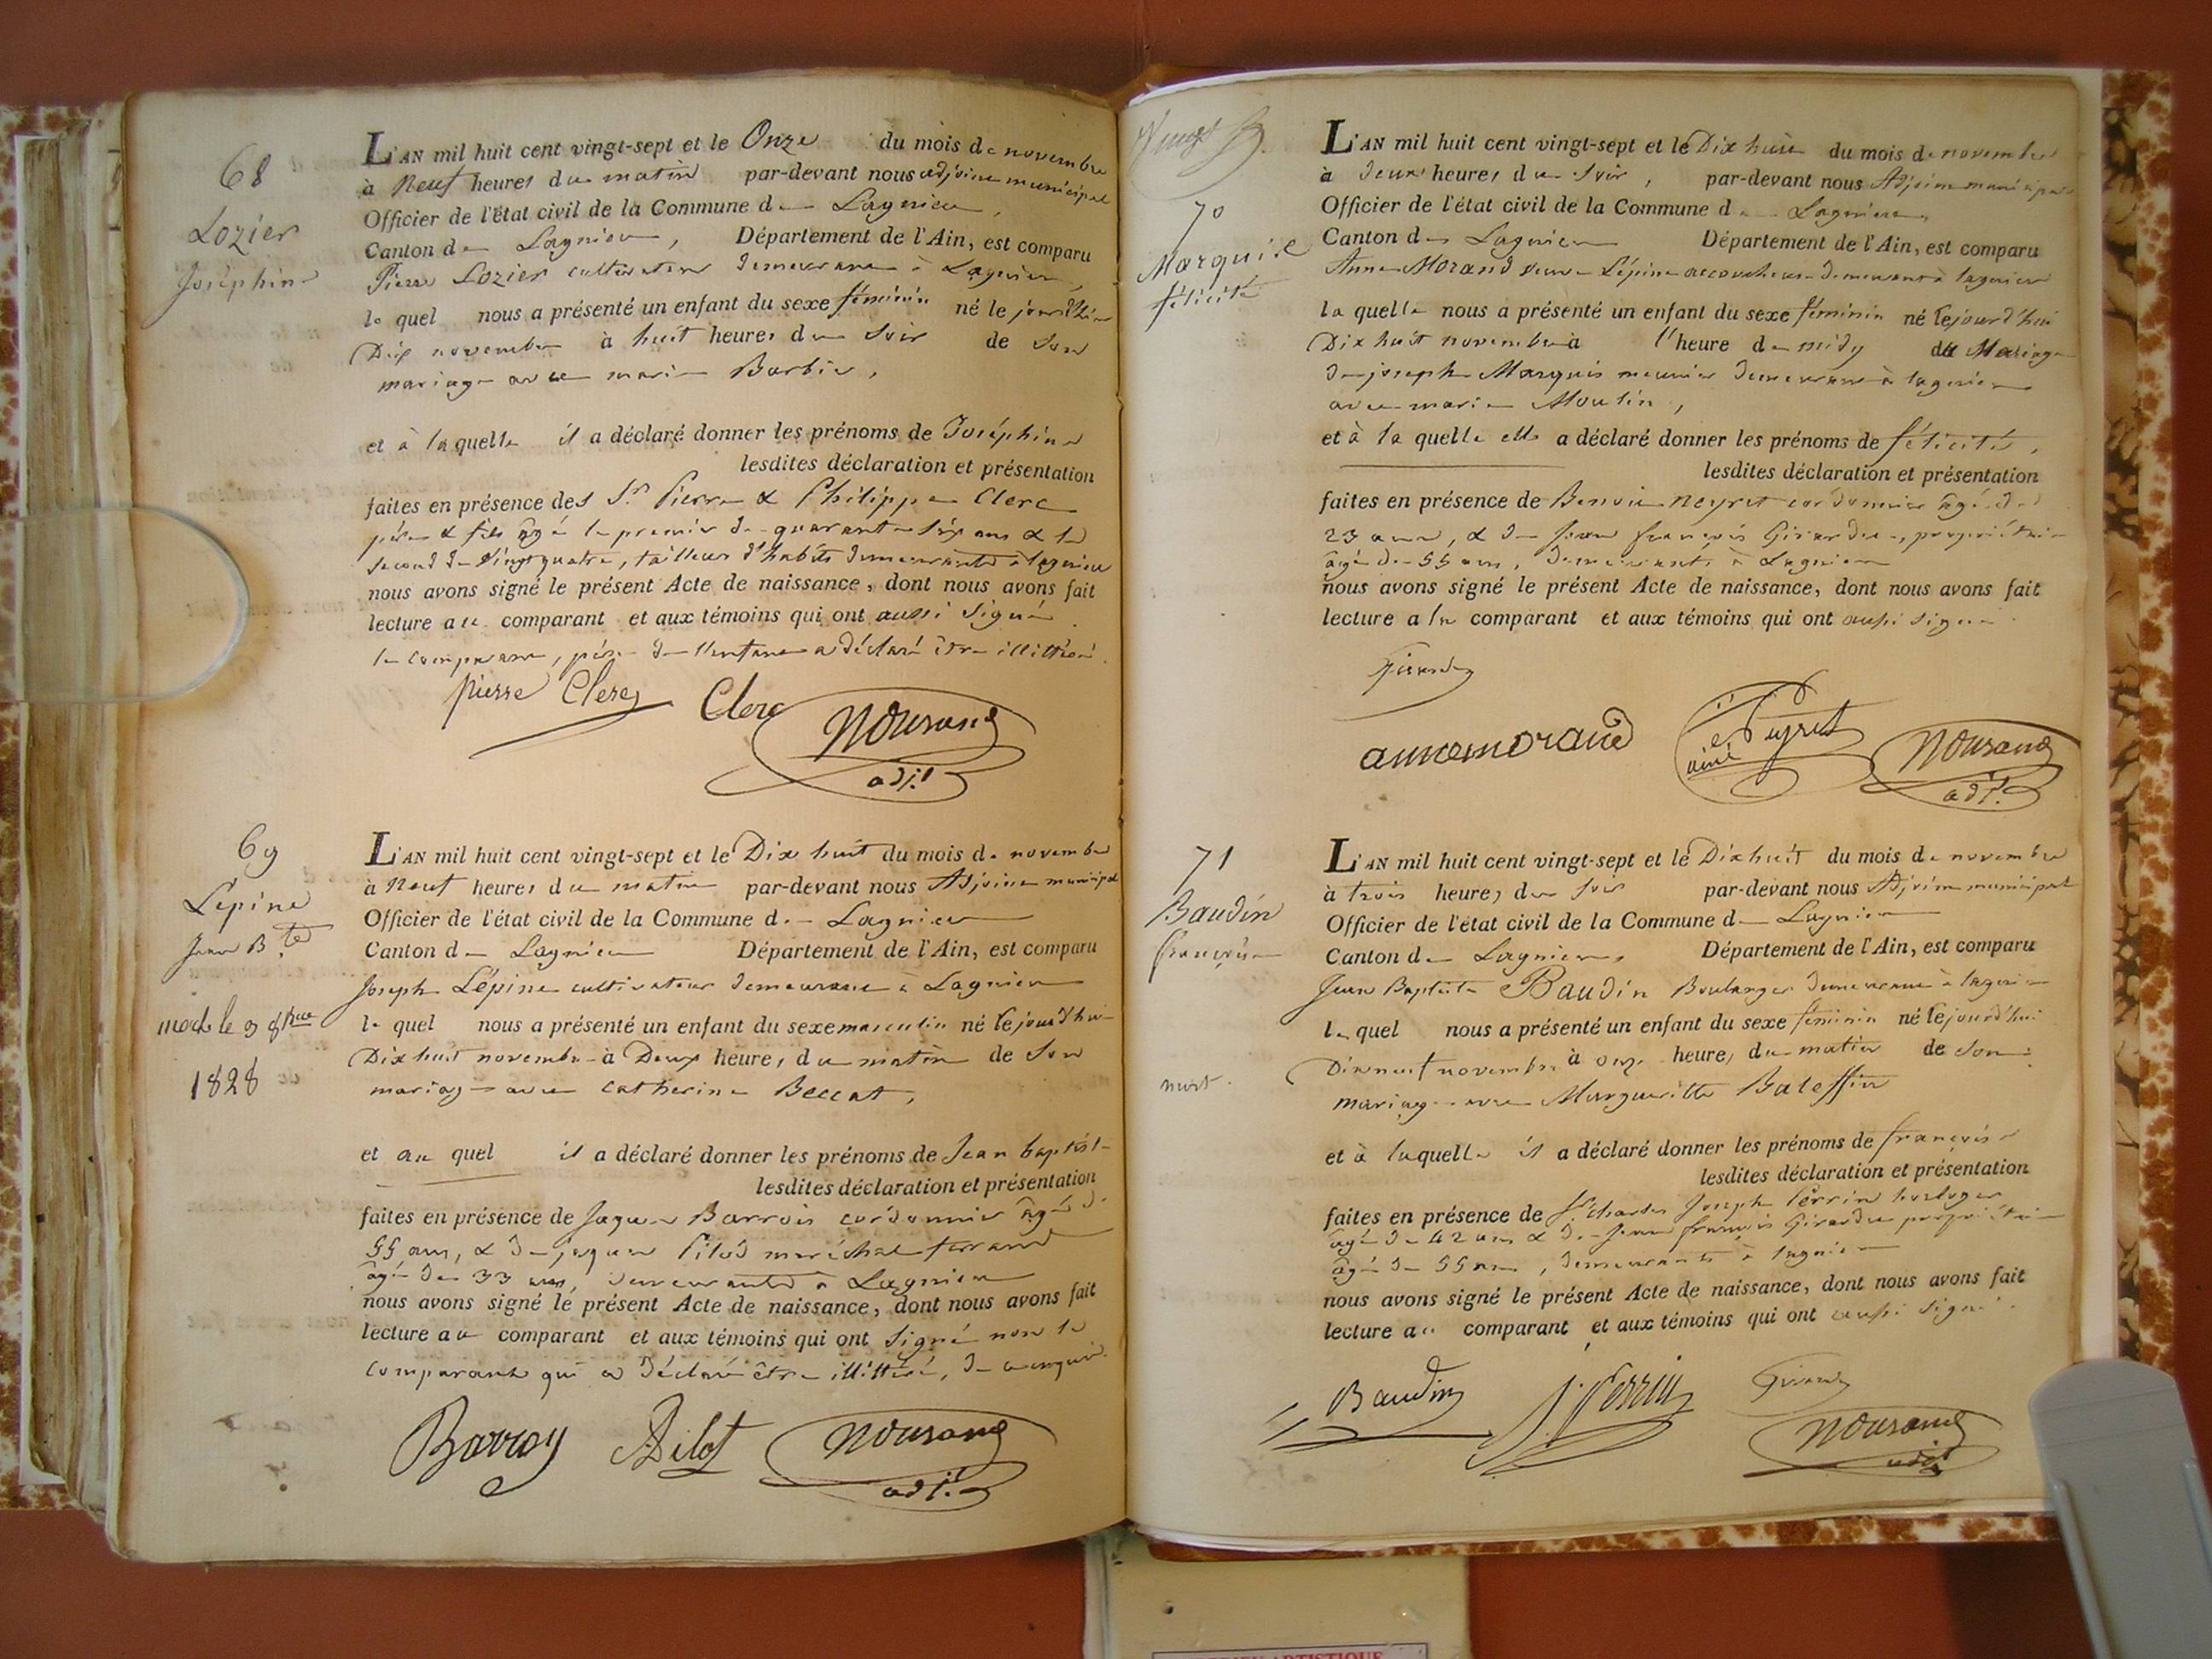 68
Lozier
Joséphine
L'AN mil huit cent vingt-sept et le Onze du mois de novembre
à Neuf heures du matin par-devant nous adjoint municipal
Officier de l'état civil de la Commune de Lagnieu,
Canton de Lagnieu, Département de l'Ain, est comparu
Pierre Lozier cultivateur demeurant à Lagnieu,
le quel nous a présenté un enfant du sexe féminin né le jourd'hier
Dix novembre à huit heures du soir de son
mariage avec marie Barbier,
et à laquelle il a déclaré donner les prénoms de Joséphine
lesdites déclaration et présentation
faites en présence des Srs Pierre & Philippe Clerc
père & fils âgé le premier de quarante six ans & le
second de vingt quatre, tailleurs d'habits demeurants à lagnieu
nous avons signé le présent Acte de naissance, dont nous avons fait
lecture au comparant et aux témoins qui ont aussi signé.
le comparant, père de l'enfant a déclaré être illitéré.
pierre Clerc
Clerc
Mourand
adjt
69
Lépine
Jean Bte
mort le 3 8bre
1828
L'AN mil huit cent vingt-sept et le Dix huit du mois de novembre
à Neuf heures du matin par-devant nous Adjoint municipal
Officier de l'état civil de la Commune de Lagnieu
Canton de Lagnieu Département de l'Ain, est comparu
Joseph Lépine cultivateur demeurant à Lagnieu
le quel nous a présenté un enfant du sexe masculin né le jourd'hui
Dix huit novembre à Deux heures du matin de son
mariage avec Catherine Beccat,
et au quel il a déclaré donner les prénoms de Jean baptiste
lesdites déclaration et présentation
faites en présence de Jaques Barrois cordonnier âgé de
55 ans, & de jaques Pilod maréchal ferrand
âgé de 33 ans, demeurants à Lagnieu
nous avons signé le présent Acte de naissance, dont nous avons fait
lecture au comparant et aux témoins qui ont signé non le
comparant qui a déclaré être illittéré, de ce enquis.
Barroy
Pilot
Mourand
adjt
70
Marquise
félicité
L'AN mil huit cent vingt-sept et le Dix huit du mois de novembre
à deux heures du soir, par-devant nous Adjoint municipal
Officier de l'état civil de la Commune de Lagnieu,
Canton de Lagnieu Département de l'Ain, est comparu
Anne Morand veuve Lépine accoucheuse demeurant à lagnieu
la quelle nous a présenté un enfant du sexe féminin né le jourd'hui
Dix huit novembre à l'heure de midy du Mariage
de joseph Marquis meunier demeurant à lagnieu
avec marie Moulin,
et à la quelle elle a déclaré donner les prénoms de félicité,
lesdites déclaration et présentation
faites en présence de Benoit Neyret cordonnier âgé de
23 ans, & de jean françois Girardin, propriétaire
âgé de 55 ans, demeurants à Lagnieu
nous avons signé le présent Acte de naissance, dont nous avons fait
lecture a la comparant et aux témoins qui ont aussi signé.
annemorand
Neyret
ainé
Mourand
adjt
71
Baudin
françoise
mort.
L'AN mil huit cent vingt-sept et le Dix huit du mois de novembre
à trois heures du soir par-devant nous Adjoint municipal
Officier de l'état civil de la Commune de Lagnieu
Canton de Lagnieu, Département de l'Ain, est comparu
Jean Baptiste Baudin Boulanger demeurant à lagnieu
le quel nous a présenté un enfant du sexe féminin né le jourd'hui
Dix huit novembre à onze heures du matin de son
mariage avec Margueritte Baleffin
et à laquelle il a déclaré donner les prénoms de françoise
lesdites déclaration et présentation
faites en présence de Sr charles Joseph Perrin horloger
âgé de 42 ans & de Jean françois Girardin propriétaire
âgé de 55 ans, demeurants à lagnieu
nous avons signé le présent Acte de naissance, dont nous avons fait
lecture au comparant et aux témoins qui ont aussi signé.
Baudin
J. Perrin
Mourand
adjt